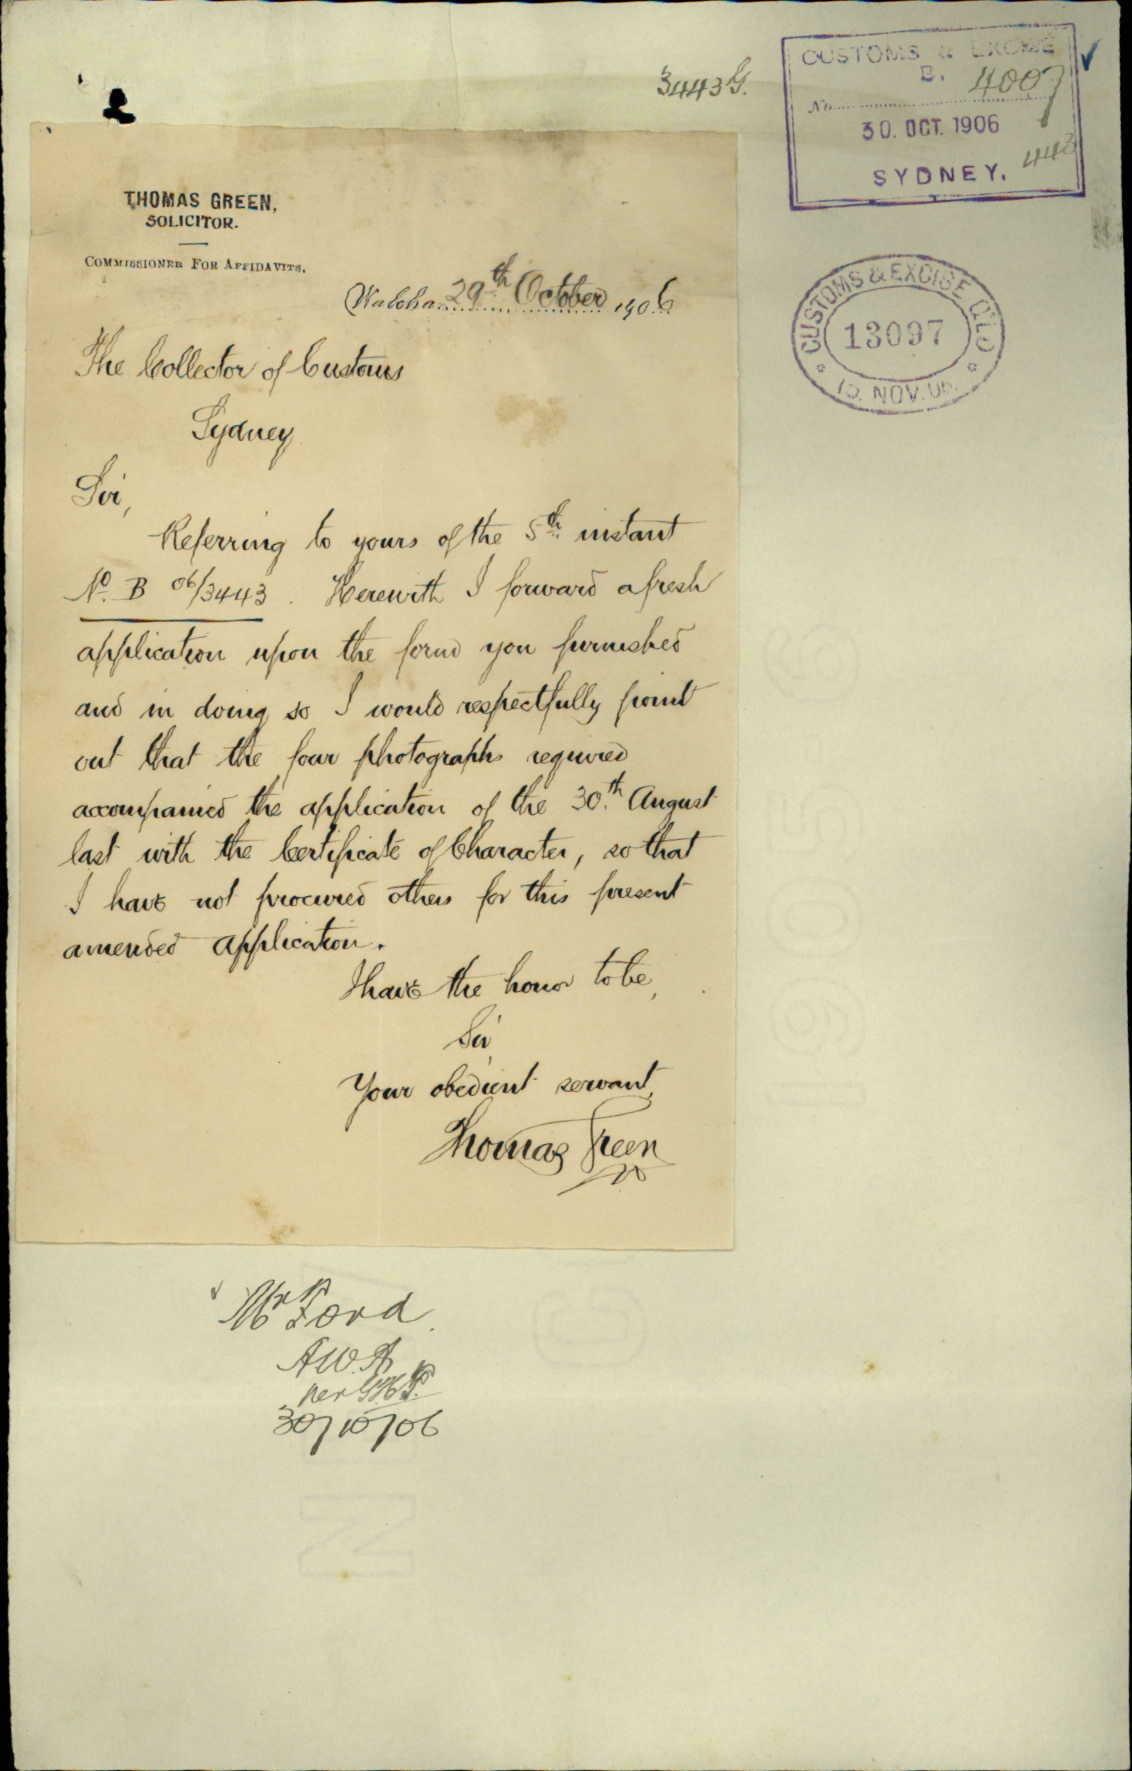 3443 G.
CUSTOMS & EXCISE
B. 4007
No.
30. OCT. 1906
443
SYDNEY.
CUSTOMS & EXCISE QLD
13097
15. NOV. 06
THOMAS GREEN,
SOLICITOR.
COMMISSIONER FOR AFFIDAVITS.
Walcha 29th October 1906
The Collector of Customs
Sydney
Sir,
Referring to yours of the 5th instant
No. B 06/3443. Herewith I forward a fresh
application upon the form you furnished
and in doing so I would respectfully point
out that the four photographs required
accompanied the application of the 30th August
last with the Certificate of Character, so that
I have not procured others for this present
amended application.
I have the honor to be,
Sir
Your obedient servant,
Thomas Green
Mr Ford
per
30/10/06